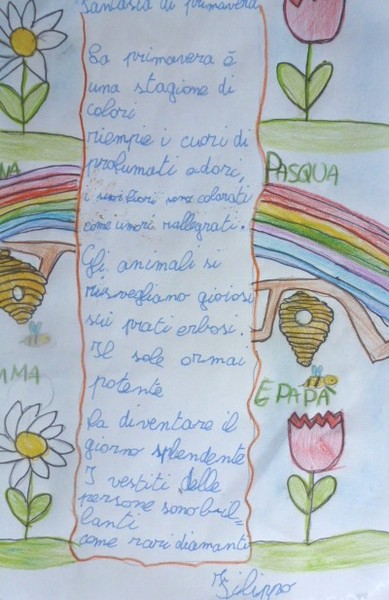 fantasia di primavera
La primavera è
una stagione di
colori
riempie i cuori di
profumati odori,
i suoi fiori sono colorati
come umori rallegrati.
Gli animali si
risvegliano gioiosi
sui prati erbosi.
Il sole ormai
potente
Fa diventare il
giorno splendente
I vestiti delle
persone sono bril=
lanti
come rari diamanti
Filippo
NA
PASQUA
MMA
E PAPÀ